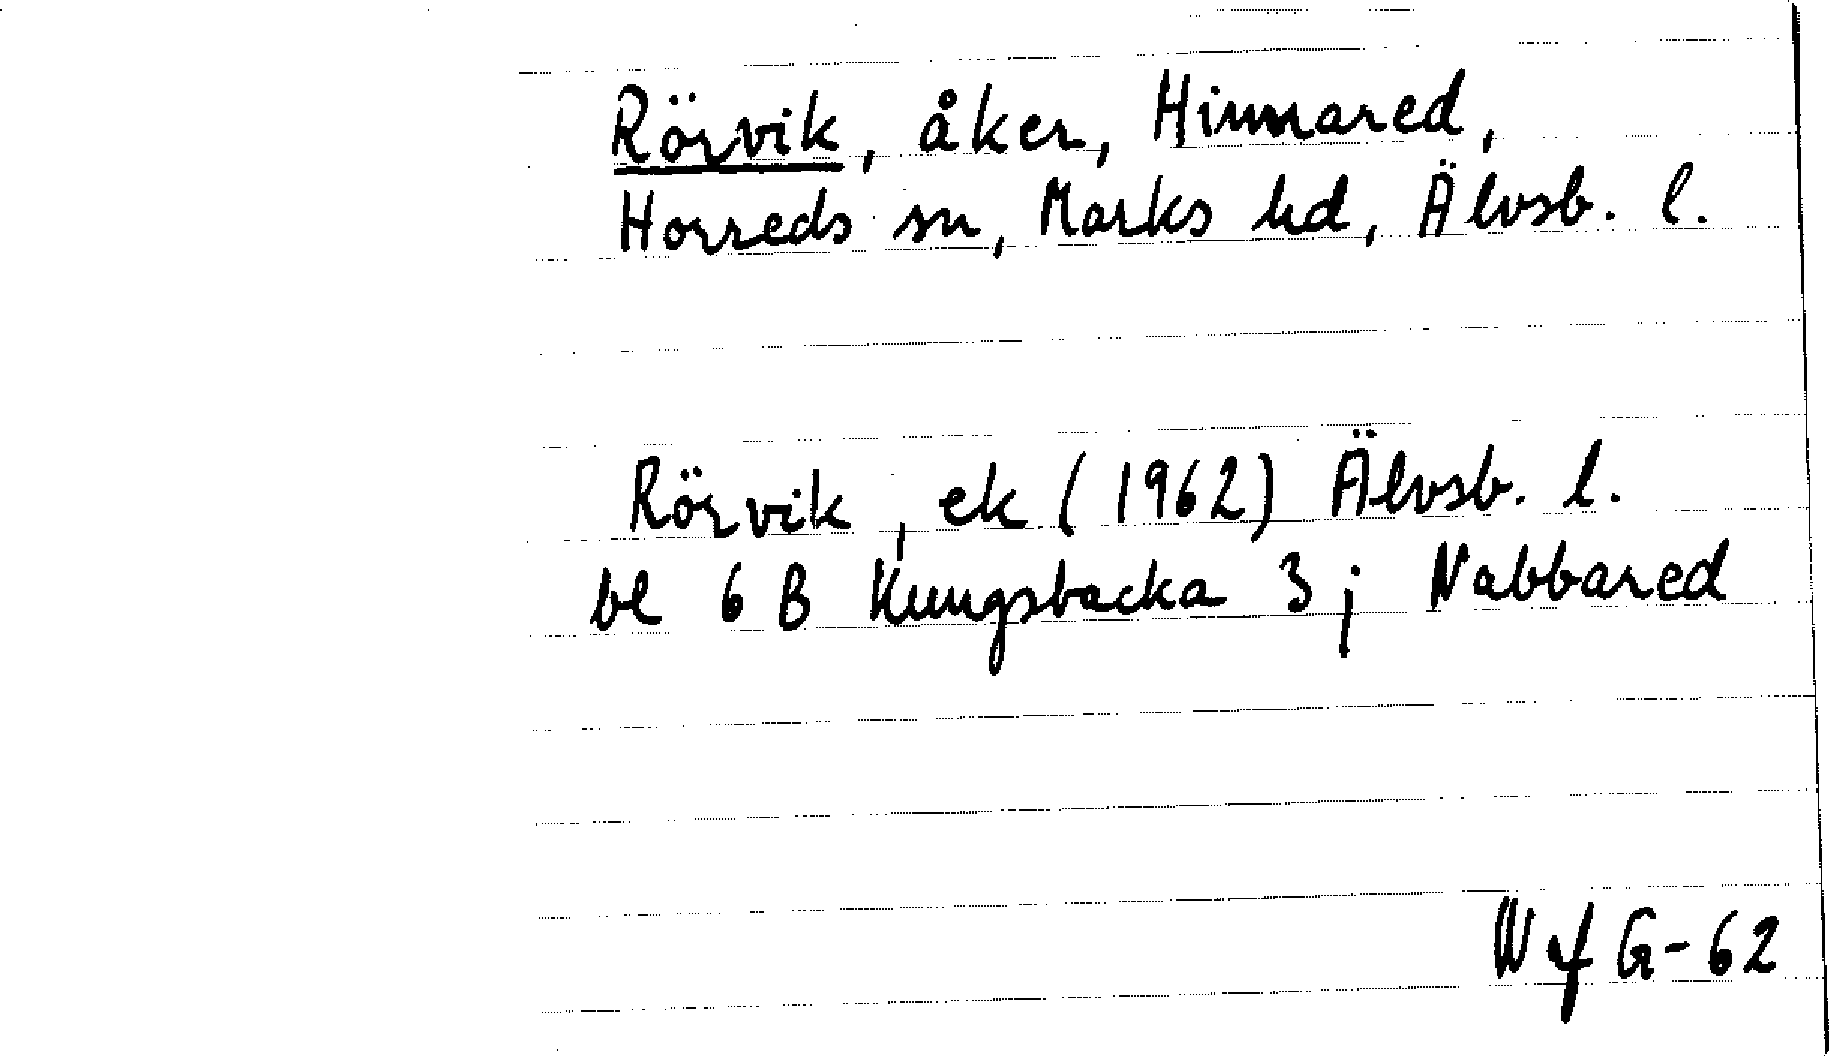 Rörvik, åker, Hinnared,
Horreds sn, Marks hd, Älvsb. l.
Rörvik, ek (1962) Älvsb. l.
bl 6 B Kungsbacka 3 j Nabbared
G-62